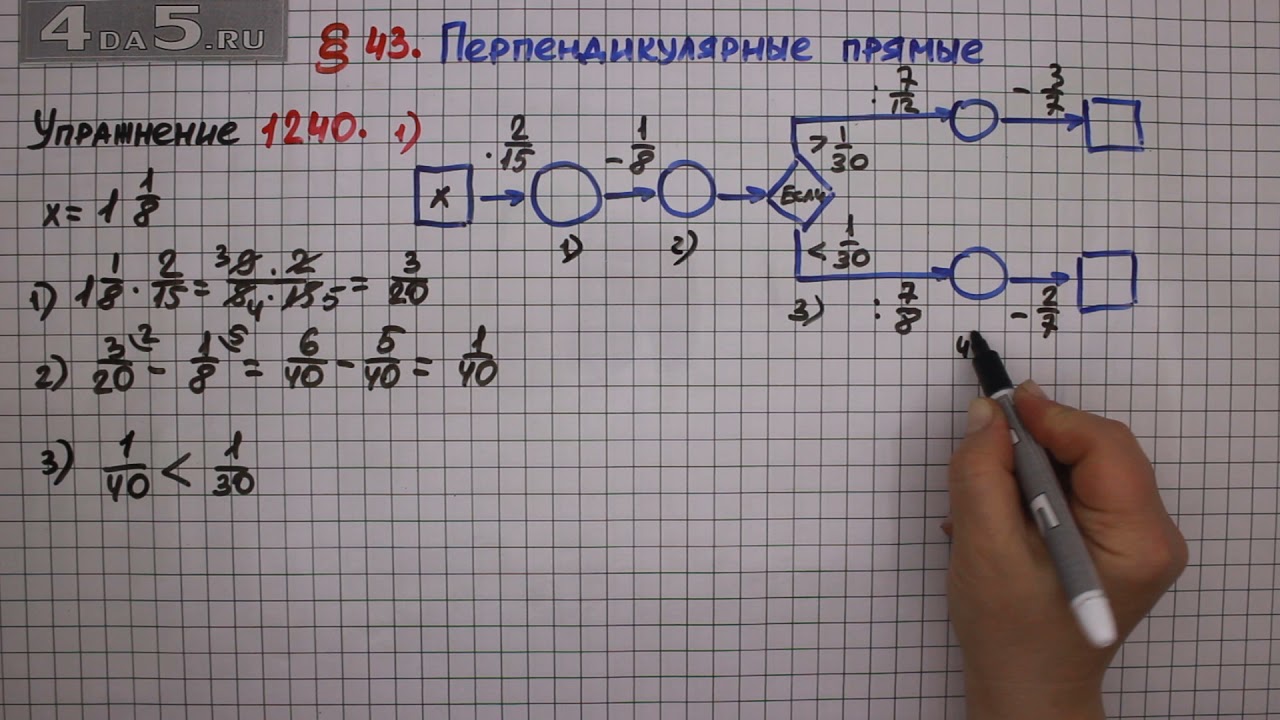 4ДА5.RU
§ 43. Перпендикулярные прямые
Упражнение 1240. 1)
x = 1 1/8
1) 1 1/8 · 2/15 = 9 · 2 / 8 · 15 = 3/20
3 4 5
2) 3/20 - 1/8 = 6/40 - 5/40 = 1/40
2 5
3) 1/40 < 1/30
x
· 2/15
1)
- 1/8
2)
Если
> 1/30
: 7/12
- 3/7
< 1/30
3)
: 7/8
- 2/7
4